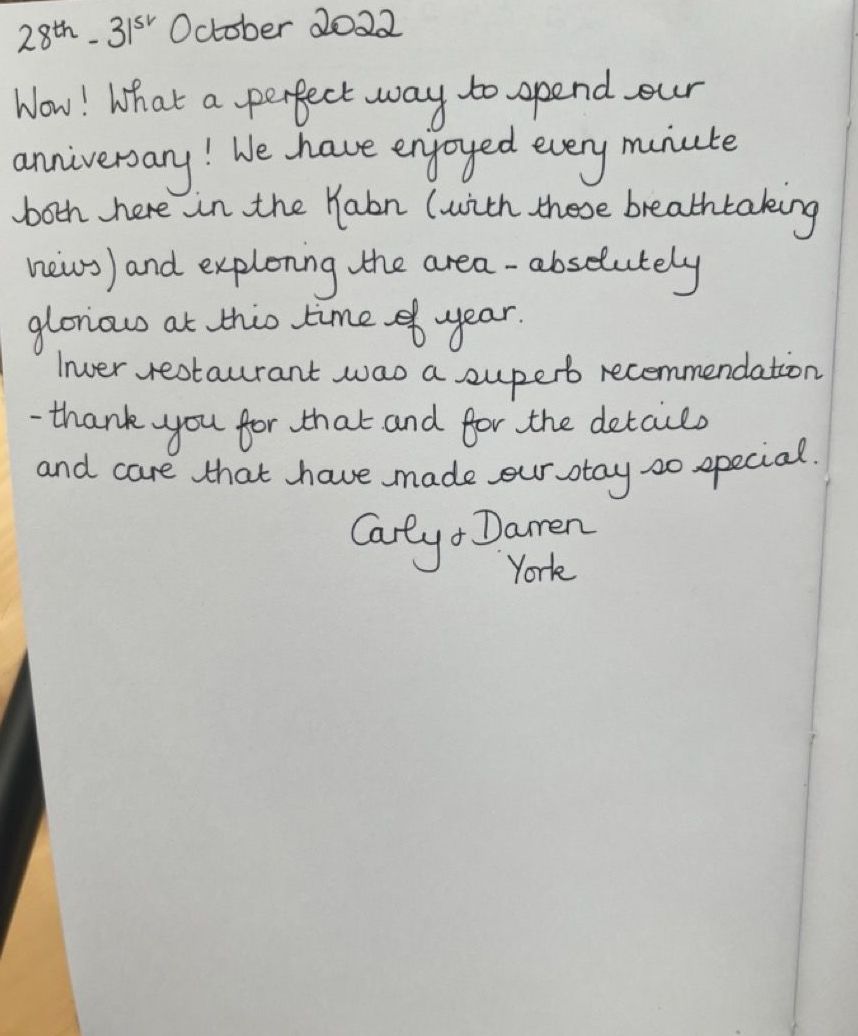 28th - 31st October 2022
Wow! What a perfect way to spend our
anniversary! We have enjoyed every minute
both here in the Kabn (with those breathtaking
views) and exploring the area - absolutely
glorious at this time of year.
Inver restaurant was a superb recommendation
- thank you for that and for the details
and care that have made our stay so special.
Carly + Darren
York